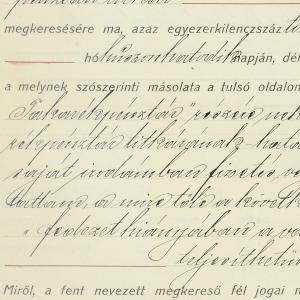 megkeresésére ma, azaz egyezerkilenczszáz
hó huszonhatodik napján, dél
a melynek szószerinti másolata a tulsó oldalon
Takarékpénztár" részére
titkárának
saját irodámban fizetés
a mire tőle a követk
" fedezet hiányában a
teljesíthetem
Miről, a fent nevezett megkereső fél jogai m